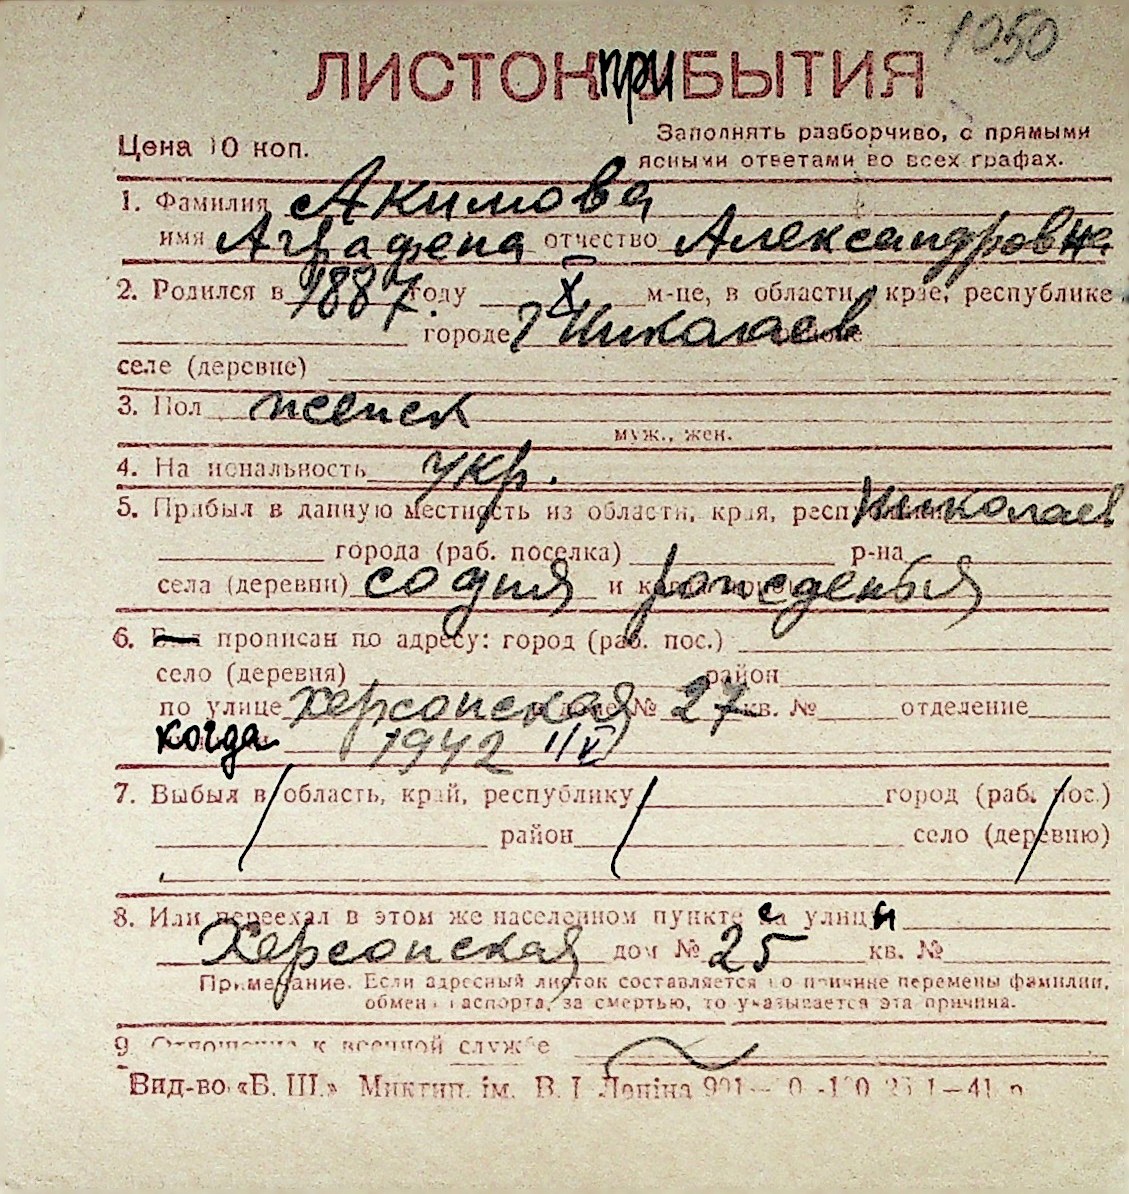 1050
ЛИСТОК ПРИБЫТИЯ
Цена 10 коп.
Заполнять разборчиво, с прямыми
ясными ответами во всех графах.
1. Фамилия Акимова
имя Аграфена отчество Александровна
2. Родился в 1887 году X м-це, в области, крае, республике
городе г Николаев
селе (деревне)
3. Пол женск
муж., жен.
4. Национальность укр.
5. Прибыл в данную местность из области, края, респ Николаев
города (раб. поселка) р-на
села (деревни) со дня и рожденья
6. прописан по адресу: город (раб. пос.)
село (деревня) район
по улице Херсонская № 27 кв. № отделение
когда 1942 1/V
7. Выбыл в область, край, республику город (раб. пос.)
район село (деревню)
8. Или переехал в этом же населенном пункте с улицы
Херсонская дом № 25 кв. №
Примечание. Если адресный листок составляется по причине перемены фамилии,
обмена паспорта, за смертью, то указывается эта причина.
9. Отношение к военной службе
Вид-во «Б. Ш.» Миктип. ім. В. І. Леніна